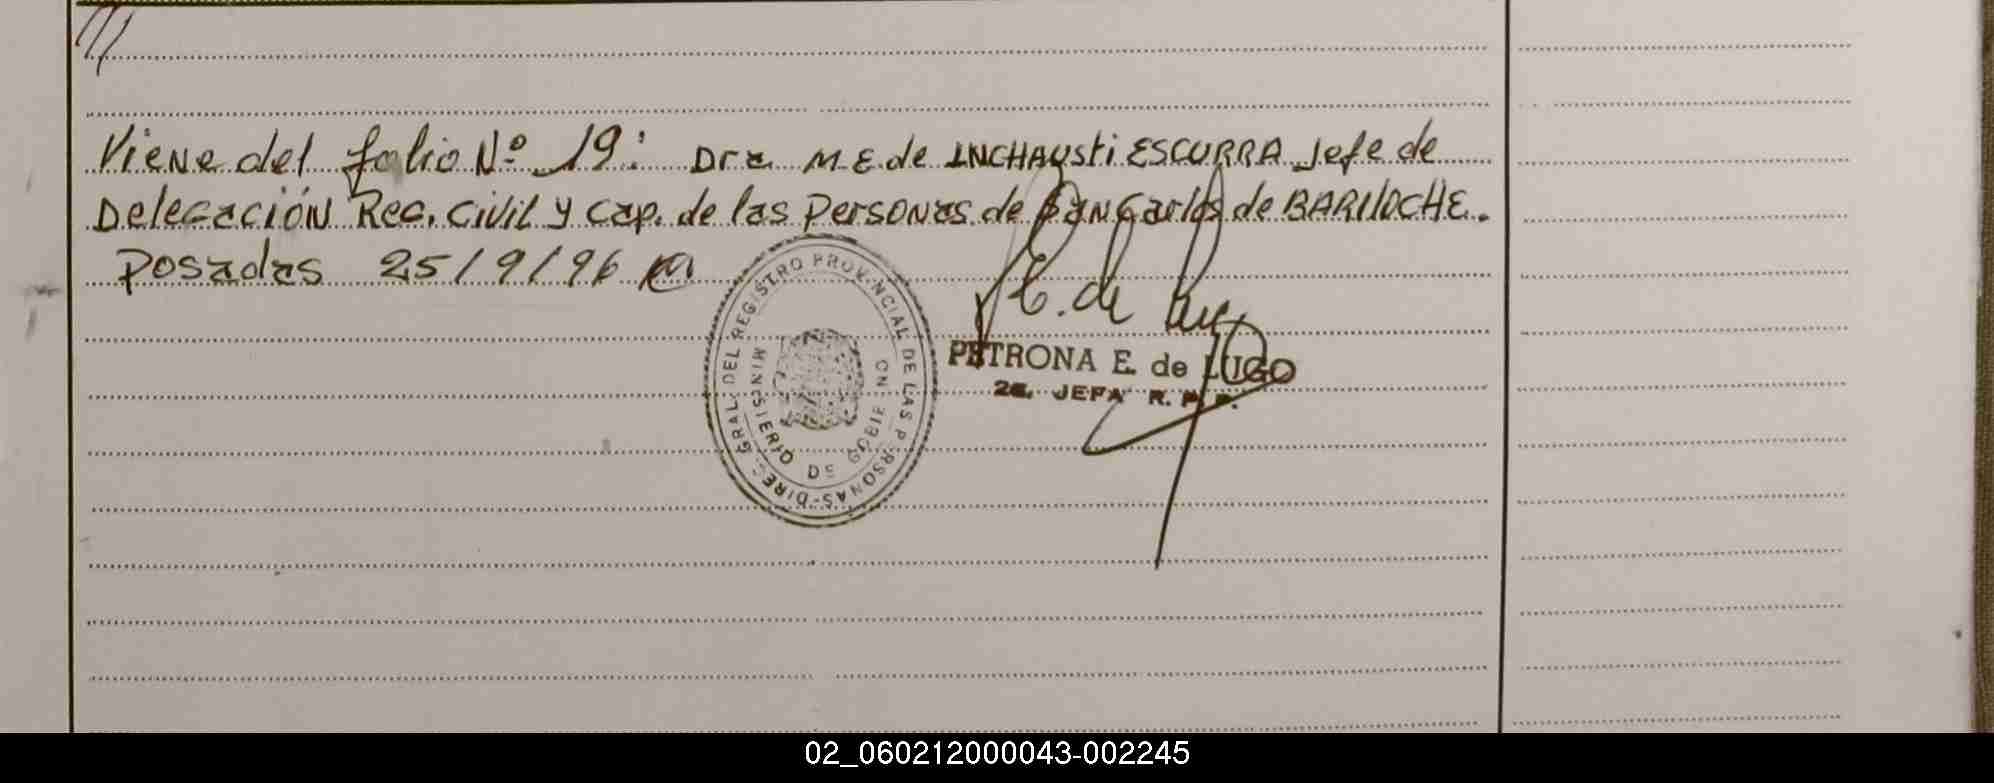 Viene del folio Nº 19: Dra M E de INCHAUSti ESCURRA Jefe de
Delegación Reg. Civil y Cap. de las Personas de San Carlos de BARILOCHE.
Posadas 25/9/96
DIREC. GRAL. DEL REGISTRO PROVINCIAL DE LAS PERSONAS
MINISTERIO DE GOBIERNO
PETRONA E. de LUGO
2a. JEFA R. P. P.
02_060212000043-002245